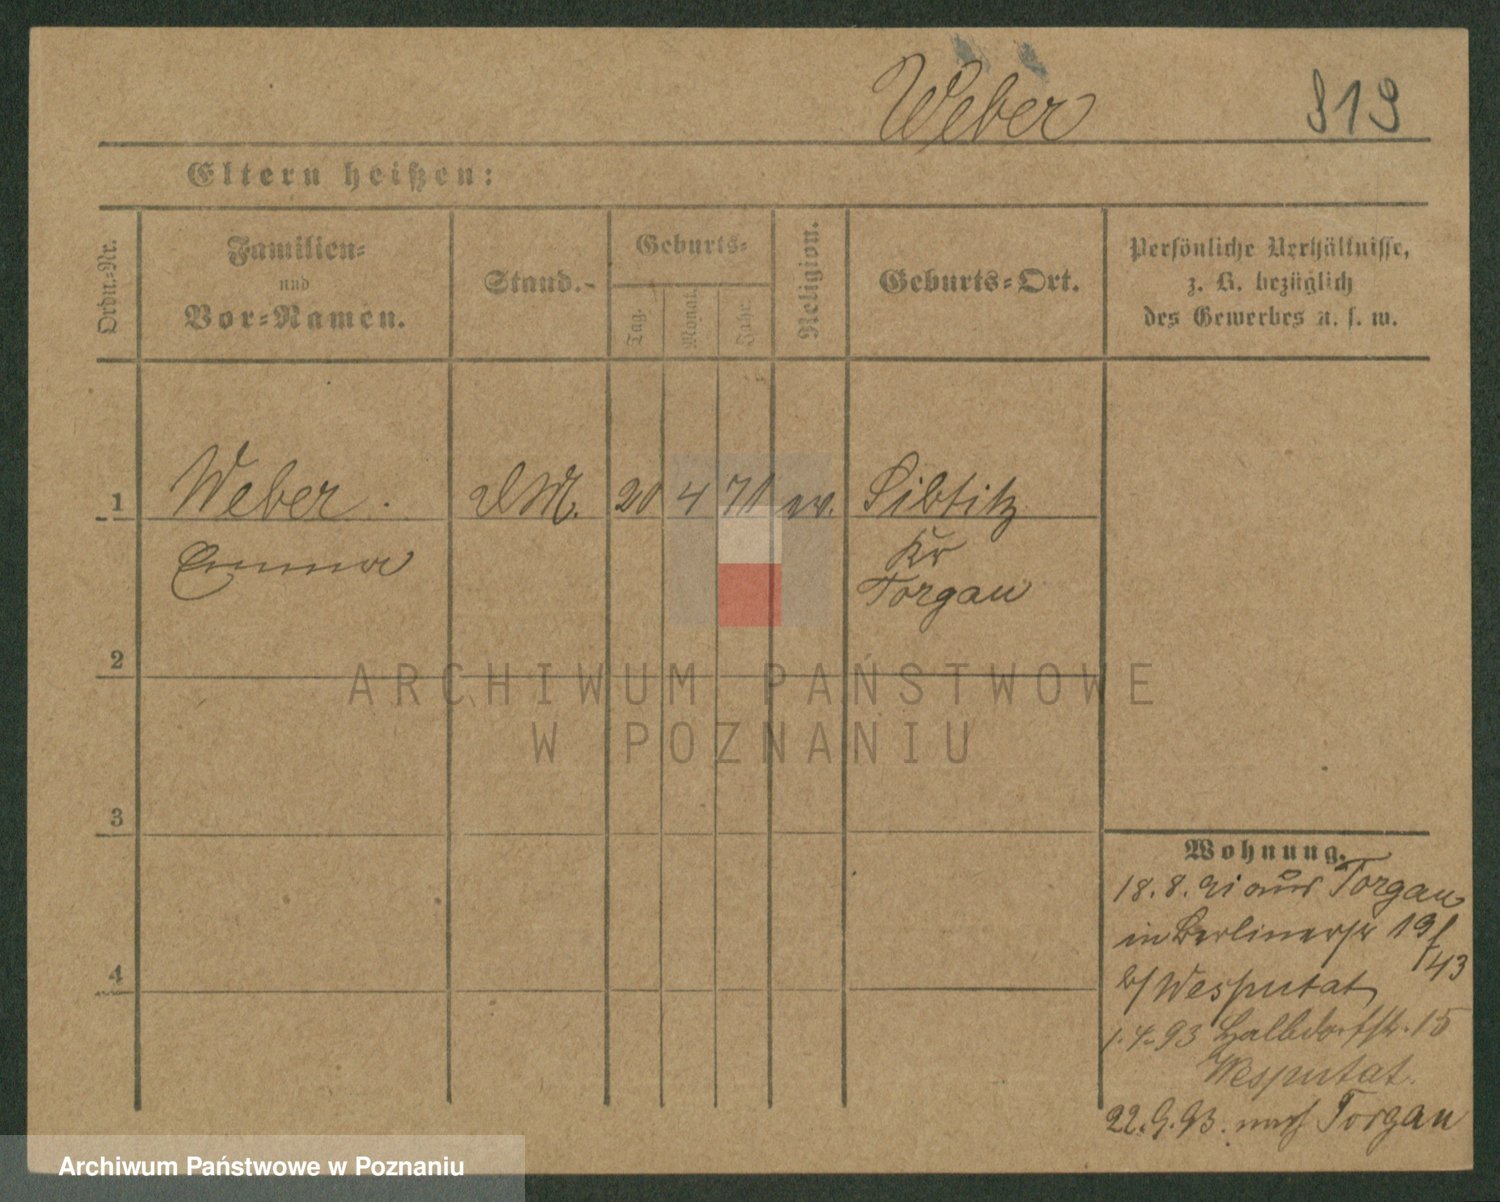 Weber 819
Eltern heißen:
Ordn.-Nr.
Familien-
und
Vor-Namen.
Stand.
Geburts-
Tag.
Monat.
Jahr.
Religion.
Geburts-Ort.
Persönliche Verhältnisse,
z. B. bezüglich
des Gewerbes u. s. w.
1 Weber. DM. 20 4 71 ev. Sibtitz
Emma Kr
Torgau
2
3
4
Wohnung.
18. 8. 91 aus Torgau
in Berlinerstr 19/43
b/ Wesputat
1. 4. 93 Halbdorfstr. 15
Wesputat.
22. 9. 93. nach Torgau
ARCHIWUM PAŃSTWOWE
W POZNANIU
Archiwum Państwowe w Poznaniu